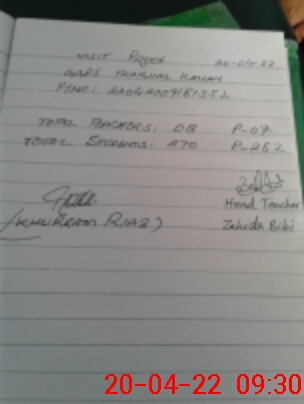 VISIT PROOF 20-04-22
GGPS THARMAL KALAN
TOTAL TEACHERS: 08 P-07
TOTAL STUDENTS: 270 P-252
Head Teacher
(KHURRAM RIAZ) Zahida Bibi
20-04-22 09:30